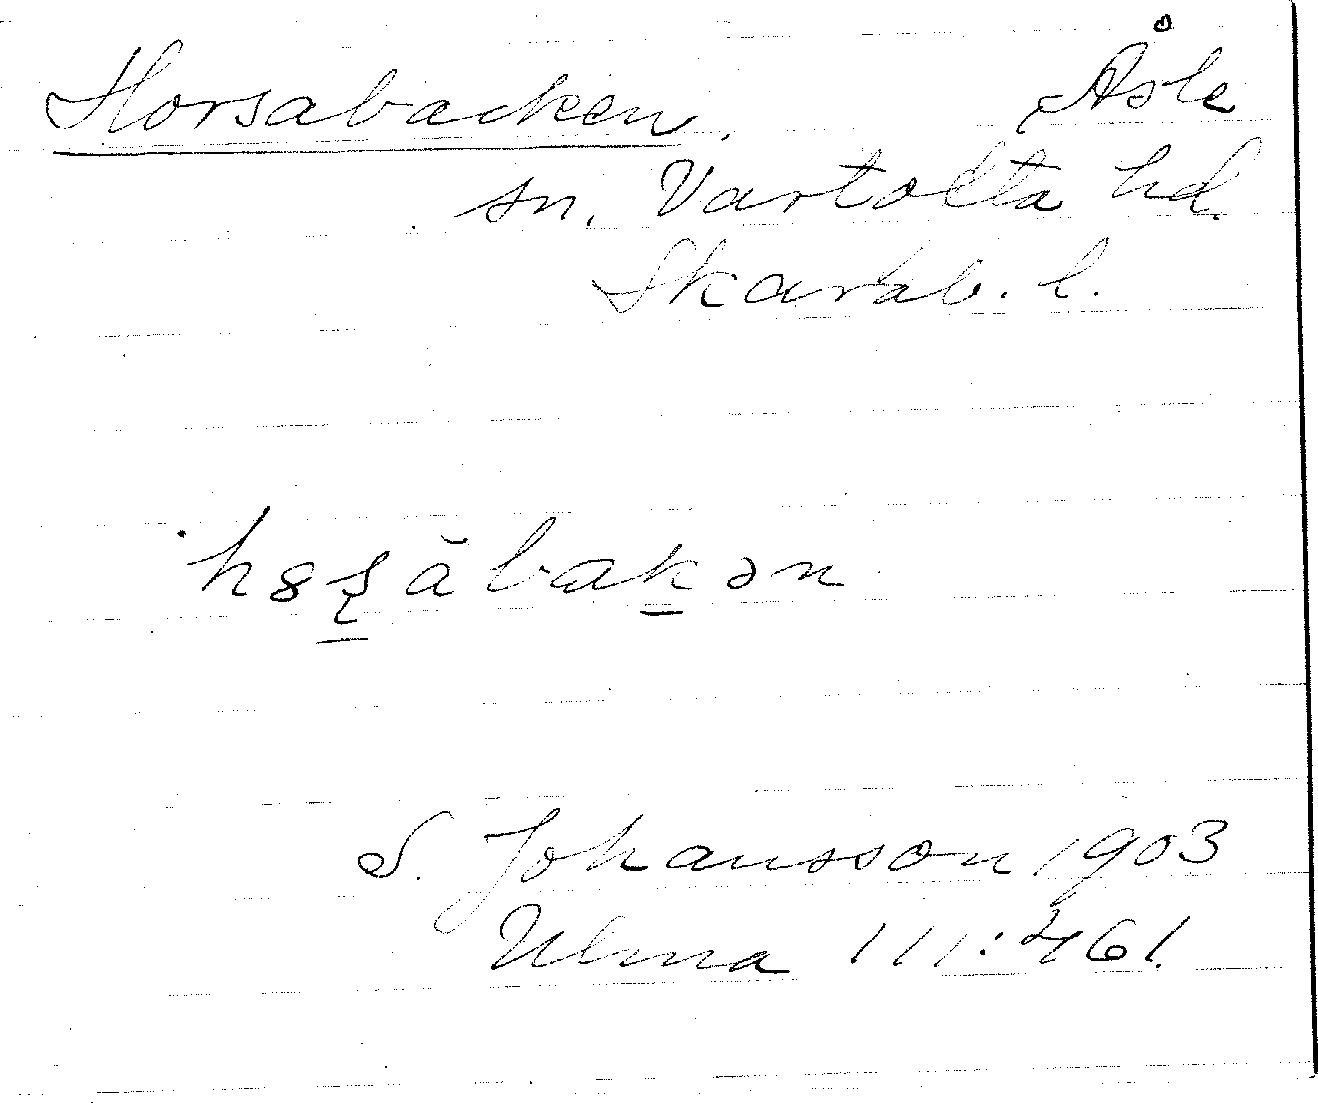 Horsabacken. Åsle
sn. Vartofta hd.
Skarab. l.
S. Johansson 1903
Ulma 111:461.